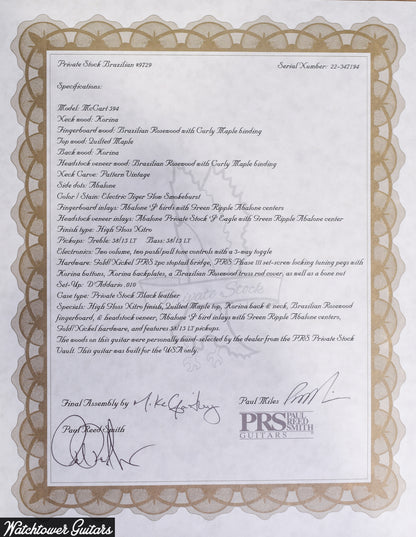 Private Stock Brazilian #9729 Serial Number: 22-347194
Specifications:
Model: McCart 594
Neck wood: Korina
Fingerboard wood: Brazilian Rosewood with Curly Maple binding
Top wood: Quilted Maple
Back wood: Korina
Headstock veneer wood: Brazilian Rosewood with Curly Maple binding
Neck Carve: Pattern Vintage
Side dots: Abalone
Color / Stain: Electric Tiger Glow Smokeburst
Fingerboard inlays: Abalone "J" birds with Green Ripple Abalone centers
Headstock veneer inlays: Abalone Private Stock "J" Eagle with Green Ripple Abalone center
Finish type: High Gloss Nitro
Pickups: Treble: 58/15 LT Bass: 58/15 LT
Electronics: Two volume, two push/pull tone controls with a 3-way toggle
Hardware: Gold/Nickel PRS 2pc stoptail bridge, PRS Phase III set-screw locking tuning pegs with
Korina buttons, Korina backplates, a Brazilian Rosewood truss rod cover, as well as a bone nut
Set-Up: D'Addario .010
Case type: Private Stock Black leather
Specials: High Gloss Nitro finish, Quilted Maple top, Korina back & neck, Brazilian Rosewood
fingerboard, & headstock veneer, Abalone "J" bird inlays with Green Ripple Abalone centers,
Gold/Nickel hardware, and features 58/15 LT pickups.
The woods on this guitar were personally hand-selected by the dealer from the PRS Private Stock
Vault. This guitar was built for the USA only.
Private Stock
Final Assembly by Paul Miles
Paul Reed Smith
PRS PAUL REED SMITH
GUITARS
Watchtower Guitars